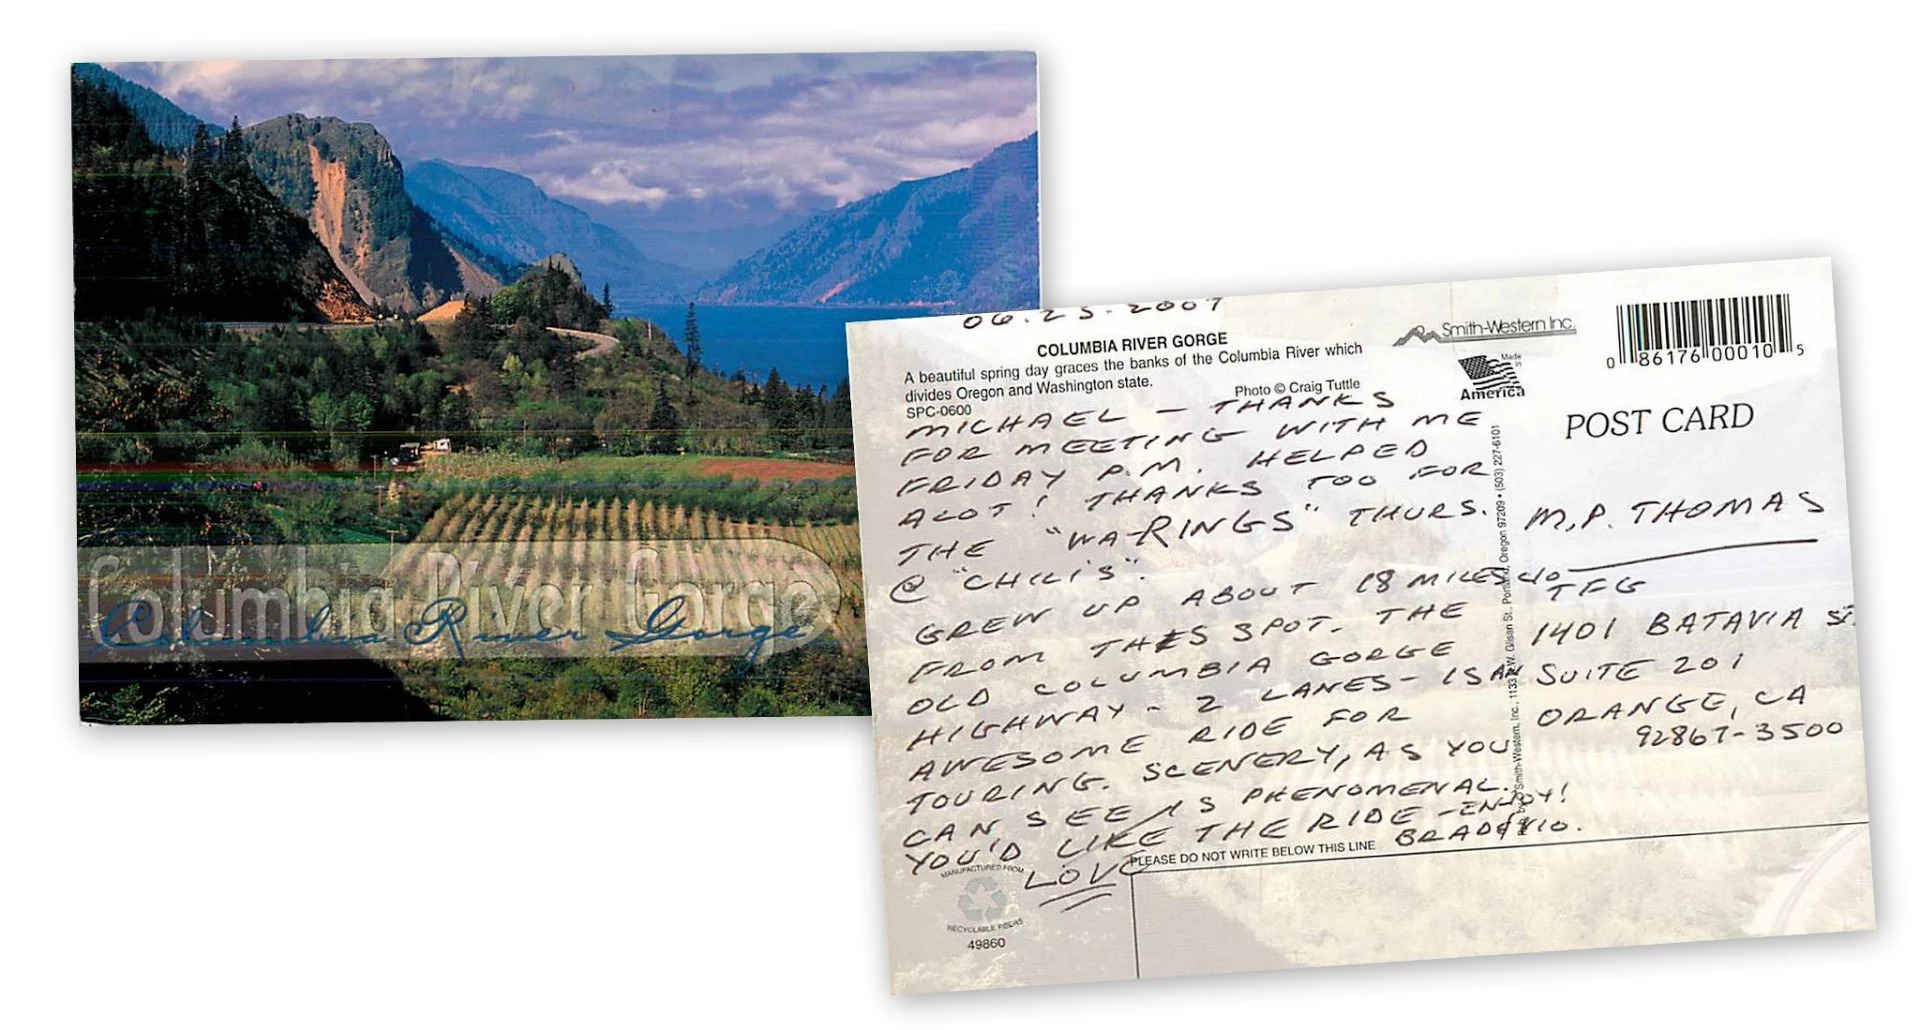 Columbia River Gorge
Columbia River Gorge
06.25.2007
COLUMBIA RIVER GORGE
A beautiful spring day graces the banks of the Columbia River which
divides Oregon and Washington state.
Photo © Craig Tuttle
SPC-0600
MICHAEL - THANKS
FOR MEETING WITH ME
FRIDAY P.M. HELPED
ALOT! THANKS TOO FOR
THE "WA-RINGS" THURS.
@ "CHILI'S".
GREW UP ABOUT 18 MILES
FROM THIS SPOT. THE
OLD COLUMBIA GORGE
HIGHWAY - 2 LANES - IS A
AWESOME RIDE FOR
TOURING. SCENERY, AS YOU
CAN SEE IS PHENOMENAL.
YOU'D LIKE THE RIDE - ENJOY!
LOVE
PLEASE DO NOT WRITE BELOW THIS LINE
MANUFACTURED FROM
RECYCLABLE FIBERS
49860
by Smith-Western, Inc., 1133 N.W. Glisan St., Portland, Oregon 97209 • (503) 227-6101
Smith-Western Inc.
Made in
America
0 86176 00010 5
POST CARD
M.P. THOMAS
c/o TFG
1401 BATAVIA ST.
SUITE 201
ORANGE, CA
92867-3500